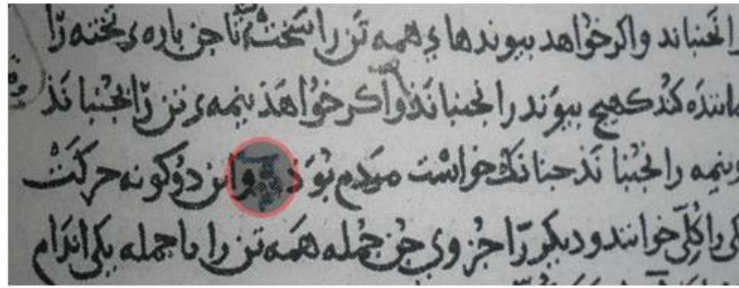 را نجنباند واکر خواهد پیوندهاء همه تن را سخت تا جن باره ء تخته را
ماننده کند کهیچ پیوند را نجنباند واکر خواهذ نیمهء تن را بجنباند
ونیمه را نجنباند جنانک خواست مردم بوذ واین دو کونه حرکت
یکی را کلی خوانند و دیکر را جزوی جن جمله همه تن را یا جمله یکی اندام